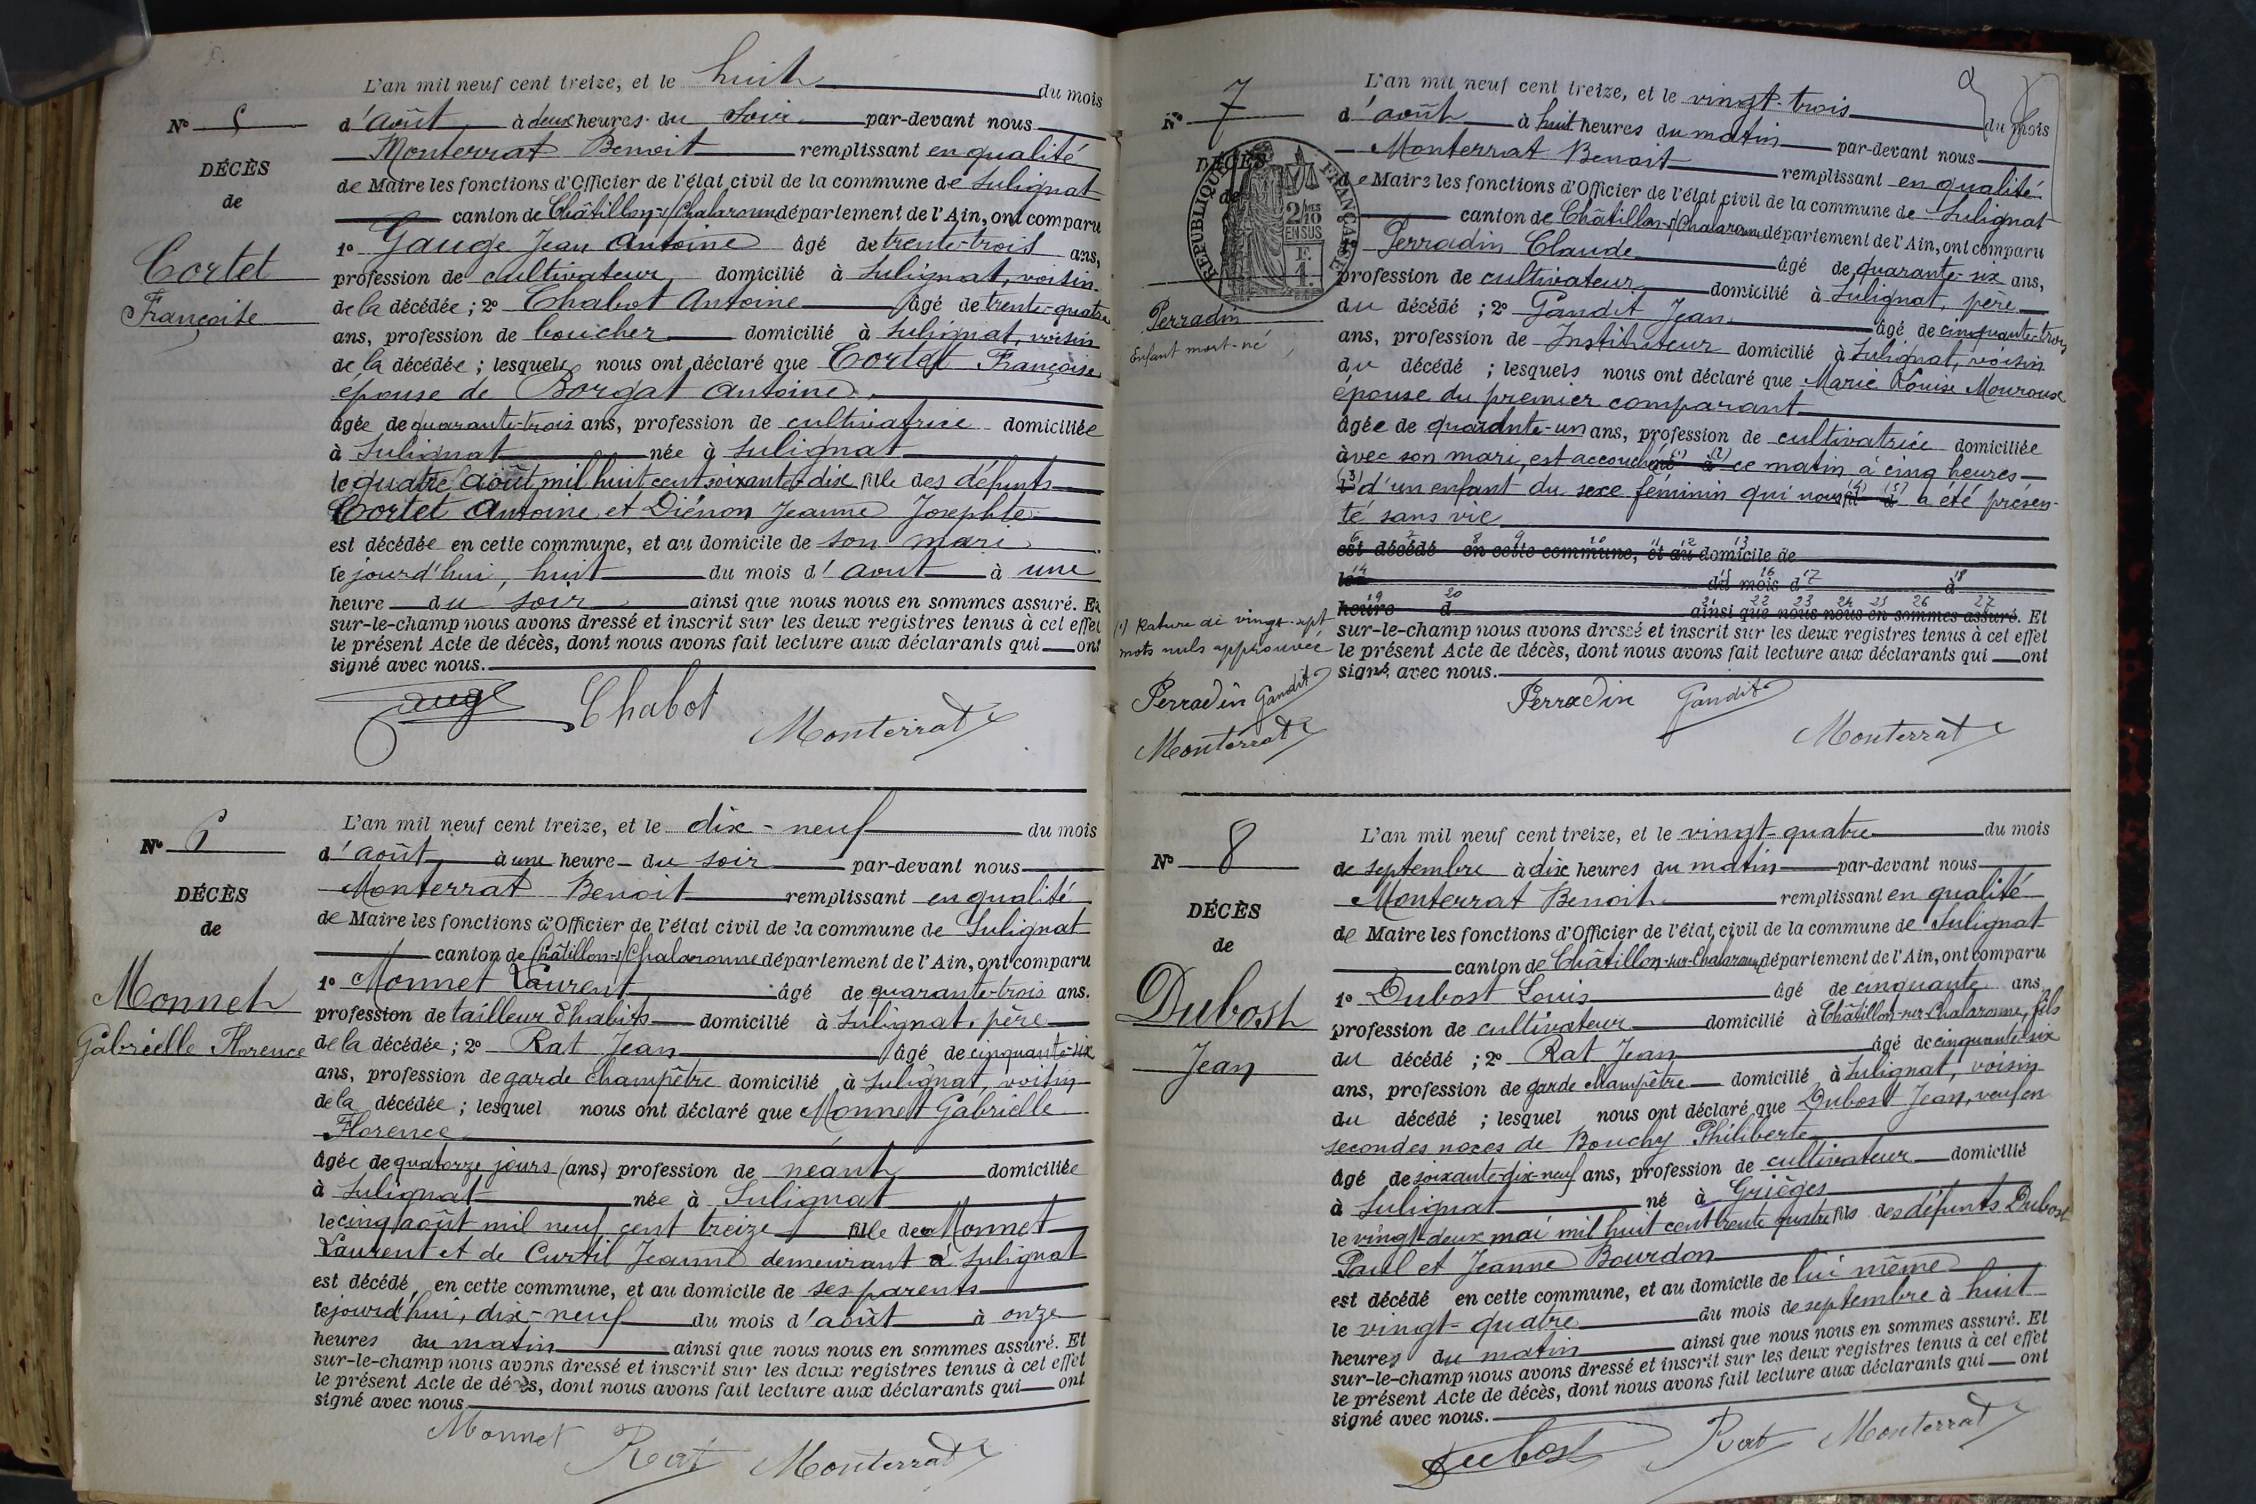 L'an mil neuf cent treize, et le huit du mois
N° 5
d'août à deux heures du soir par-devant nous
Monterrat Benoit remplissant en qualité
DÉCÈS
de Maire les fonctions d'Officier de l'état civil de la commune de Sulignat
de
canton de Châtillon-s/Chalaronne département de l'Ain, ont comparu
1° Gauge Jean Antoine âgé de trente-trois ans,
Cortet
profession de cultivateur domicilié à Sulignat, voisin
Françoise
de la décédée ; 2° Chabot Antoine âgé de trente-quatre
ans, profession de boucher domicilié à Sulignat, voisin
de la décédée ; lesquels nous ont déclaré que Cortet Françoise
épouse de Borgat Antoine
âgée de quarante-trois ans, profession de cultivatrice domiciliée
à Sulignat née à Sulignat
le quatre août mil huit cent soixante-dix fille des défunts
Cortet Antoine et Diénon Jeanne Josephte
est décédée en cette commune, et au domicile de son mari
le jourd'hui, huit du mois d'aout à une
heure du soir ainsi que nous nous en sommes assuré. Et
sur-le-champ nous avons dressé et inscrit sur les deux registres tenus à cet effet
le présent Acte de décès, dont nous avons fait lecture aux déclarants qui ont
signé avec nous.
Gauge Chabot Monterrat
L'an mil neuf cent treize, et le dix-neuf du mois
N° 6
d'août, à une heure du soir par-devant nous
Monterrat Benoit remplissant en qualité
DÉCÈS
de Maire les fonctions d'Officier de l'état civil de la commune de Sulignat
de
canton de Châtillon-s/Chalaronne département de l'Ain, ont comparu
Monnet
1° Monnet Laurent âgé de quarante-trois ans.
profession de tailleur d'habits domicilié à Sulignat, père
Gabrielle Florence
de la décédée ; 2° Rat Jean âgé de cinquante-six
ans, profession de garde champêtre domicilié à Sulignat, voisin
de la décédée ; lesquel nous ont déclaré que Monnet Gabrielle
Florence
âgée de quatorze jours (ans,) profession de néant domiciliée
à Sulignat née à Sulignat
le cinq août mil neuf cent treize fille de Monnet
Laurent et de Curtil Jeanne demeurant à Sulignat
est décédé, en cette commune, et au domicile de ses parents
le jourd'hui, dix-neuf du mois d'août à onze
heures du matin ainsi que nous nous en sommes assuré. Et
sur-le-champ nous avons dressé et inscrit sur les deux registres tenus à cet effet
le présent Acte de décès, dont nous avons fait lecture aux déclarants qui ont
signé avec nous
Monnet Rat Monterrat
L'an mil neuf cent treize, et le vingt-trois du mois
N° 7
d'août à huit heures du matin par-devant nous
Monterrat Benoit remplissant en qualité
DÉCÈS
de Maire les fonctions d'Officier de l'état civil de la commune de Sulignat
de
RÉPUBLIQUE FRANÇAISE
2/10 EN SUS
F. 1.
canton de Châtillon-s/Chalaronne département de l'Ain, ont comparu
1° Perradin Claude âgé de quarante-six ans,
profession de cultivateur domicilié à Sulignat, père
Perradin
du décédé ; 2° Gandit Jean âgé de cinquante-trois
Enfant mort-né
ans, profession de Instituteur domicilié à Sulignat, voisin
du décédé ; lesquels nous ont déclaré que Marie Louise Mouroux
épouse du premier comparant
âgée de quarante-un ans, profession de cultivatrice domiciliée
avec son mari, est accouchée né à ce matin à cinq heures
le d'un enfant du sexe féminin qui nous fil d a été présen-
té sans vie
est décédé en cette commune, et au domicile de
le du mois d à
heure d ainsi que nous nous en sommes assuré. Et
(1) Rature de vingt-sept
mots nuls approuvée
sur-le-champ nous avons dressé et inscrit sur les deux registres tenus à cet effet
le présent Acte de décès, dont nous avons fait lecture aux déclarants qui ont
signé avec nous.
Perradin Gandit
Monterrat
Perradin Gandit Monterrat
L'an mil neuf cent treize, et le vingt-quatre du mois
N° 8
de septembre à dix heures du matin par-devant nous
Monterrat Benoit remplissant en qualité
DÉCÈS
de Maire les fonctions d'Officier de l'état civil de la commune de Sulignat
de
canton de Châtillon-sur-Chalaronne département de l'Ain, ont comparu
Dubost
1° Dubost Louis âgé de cinquante ans,
profession de cultivateur domicilié à Châtillon-sur-Chalaronne, fils
Jean
du décédé ; 2° Rat Jean âgé de cinquante-six
ans, profession de garde champêtre domicilié à Sulignat, voisin
du décédé ; lesquel nous ont déclaré que Dubost Jean, veuf en
secondes noces de Bouchy Philiberte
âgé de soixante-dix-neuf ans, profession de cultivateur domicilié
à Sulignat né à Grièges
le vingt-deux mai mil huit cent trente quatre fils des défunts Dubost
Paul et Jeanne Bourdon
est décédé en cette commune, et au domicile de lui même
le vingt-quatre du mois de septembre à huit
heures du matin ainsi que nous nous en sommes assuré. Et
sur-le-champ nous avons dressé et inscrit sur les deux registres tenus à cet effet
le présent Acte de décès, dont nous avons fait lecture aux déclarants qui ont
signé avec nous.
Dubost Rat Monterrat